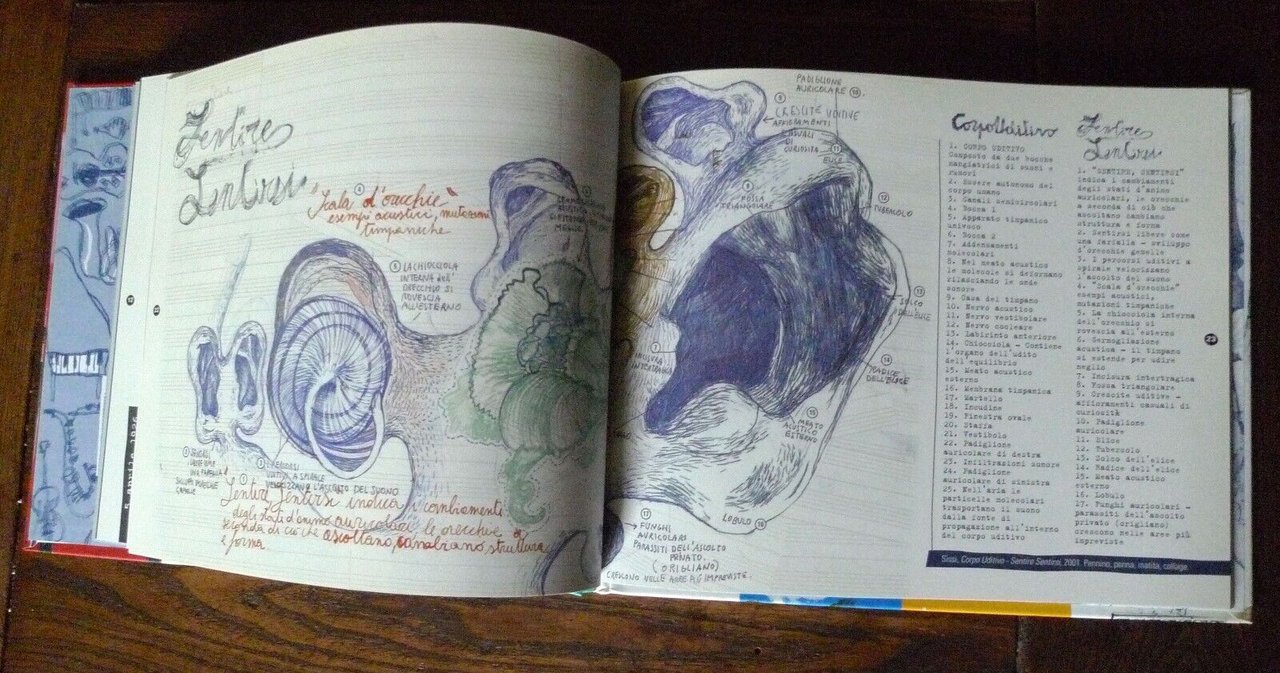 Sentire
Sentirsi
4
"Scala d'orecchie"
esempi acustici, mutazioni
timpaniche
5 LA CHIOCCIOLA
INTERNA DELL'
ORECCHIO SI
ROVESCIA
ALL'ESTERNO
ASCOLTO DEL SUONO
Sentire, Sentirsi indica i cambiamenti
degli stati d'animo auricolari le orecchie a
seconda di ciò che ascoltano cambiano struttura
e forma
PADIGLIONE
AURICOLARE 10
9 CRESCITE UDITIVE
AFFIORAMENTI
CASUALI
DI
CURIOSITÀ
11
ELICE
8
FOSSA
TRIANGOLARE
12
TUBERCOLO
13
SOLCO
DELL'ELICE
14
RADICE
DELL'ELICE
7
INCISURA
INTERTRAGICA
15
MEATO
ACUSTICO
ESTERNO
LOBULO 16
17
FUNGHI
AURICOLARI
PARASSITI DELL'ASCOLTO
PRIVATO.
(ORIGLIANO)
CRESCONO NELLE AREE PIÙ IMPREVISTE.
CorpoUditivo
1. CORPO UDITIVO
Composto da due bocche
mangiatrici di suoni e
rumori
2. Essere autonomo del
corpo umano
3. Canali semicircolari
4. Bocca 1
5. Apparato timpanico
univoco
6. Bocca 2
7. Addensamenti
molecolari
8. Nel meato acustico
le molecole si deformano
rilasciando le onde
sonore
9. Cava del timpano
10. Nervo acustico
11. Nervo vestibolare
12. Nervo cocleare
13. Labirinto anteriore
14. Chiocciola - Contiene
l'organo dell'udito
dell'equilibrio
15. Meato acustico
esterno
16. Membrana timpanica
17. Martello
18. Incudine
19. Finestra ovale
20. Staffa
21. Vestibolo
22. Padiglione
auricolare di destra
23. Infiltrazioni sonore
24. Padiglione
auricolare di sinistra
25. Nell'aria le
particelle molecolari
trasportano il suono
dalla fonte di
propagazione all'interno
del corpo uditivo
Sentire
Sentirsi
1. "SENTIRE, SENTIRSI"
indica i cambiamenti
degli stati d'animo
auricolari, le orecchie
a seconda di ciò che
ascoltano cambiano
struttura e forma
2. Sentirsi libere come
una farfalla - sviluppo
d'orecchie gemelle
3. I percorsi uditivi a
spirale velocizzano
l'ascolto del suono
4. "Scala d'orecchie"
esempi acustici,
mutazioni timpaniche
5. La chiocciola interna
dell'orecchio si
rovescia all'esterno
6. Germogliazione
acustica - il timpano
si estende per udire
meglio
7. Incisura intertragica
8. Fossa triangolare
9. Crescite uditive -
affioramenti casuali di
curiosità
10. Padiglione
auricolare
11. Elice
12. Tubercolo
13. Solco dell'elice
14. Radice dell'elice
15. Meato acustico
esterno
16. Lobulo
17. Funghi auricolari -
parassiti dell'ascolto
privato (origliano)
crescono nelle aree più
impreviste
23
Sissi, Corpo Uditivo - Sentire Sentirsi, 2001. Pennino, penna, matita, collage.